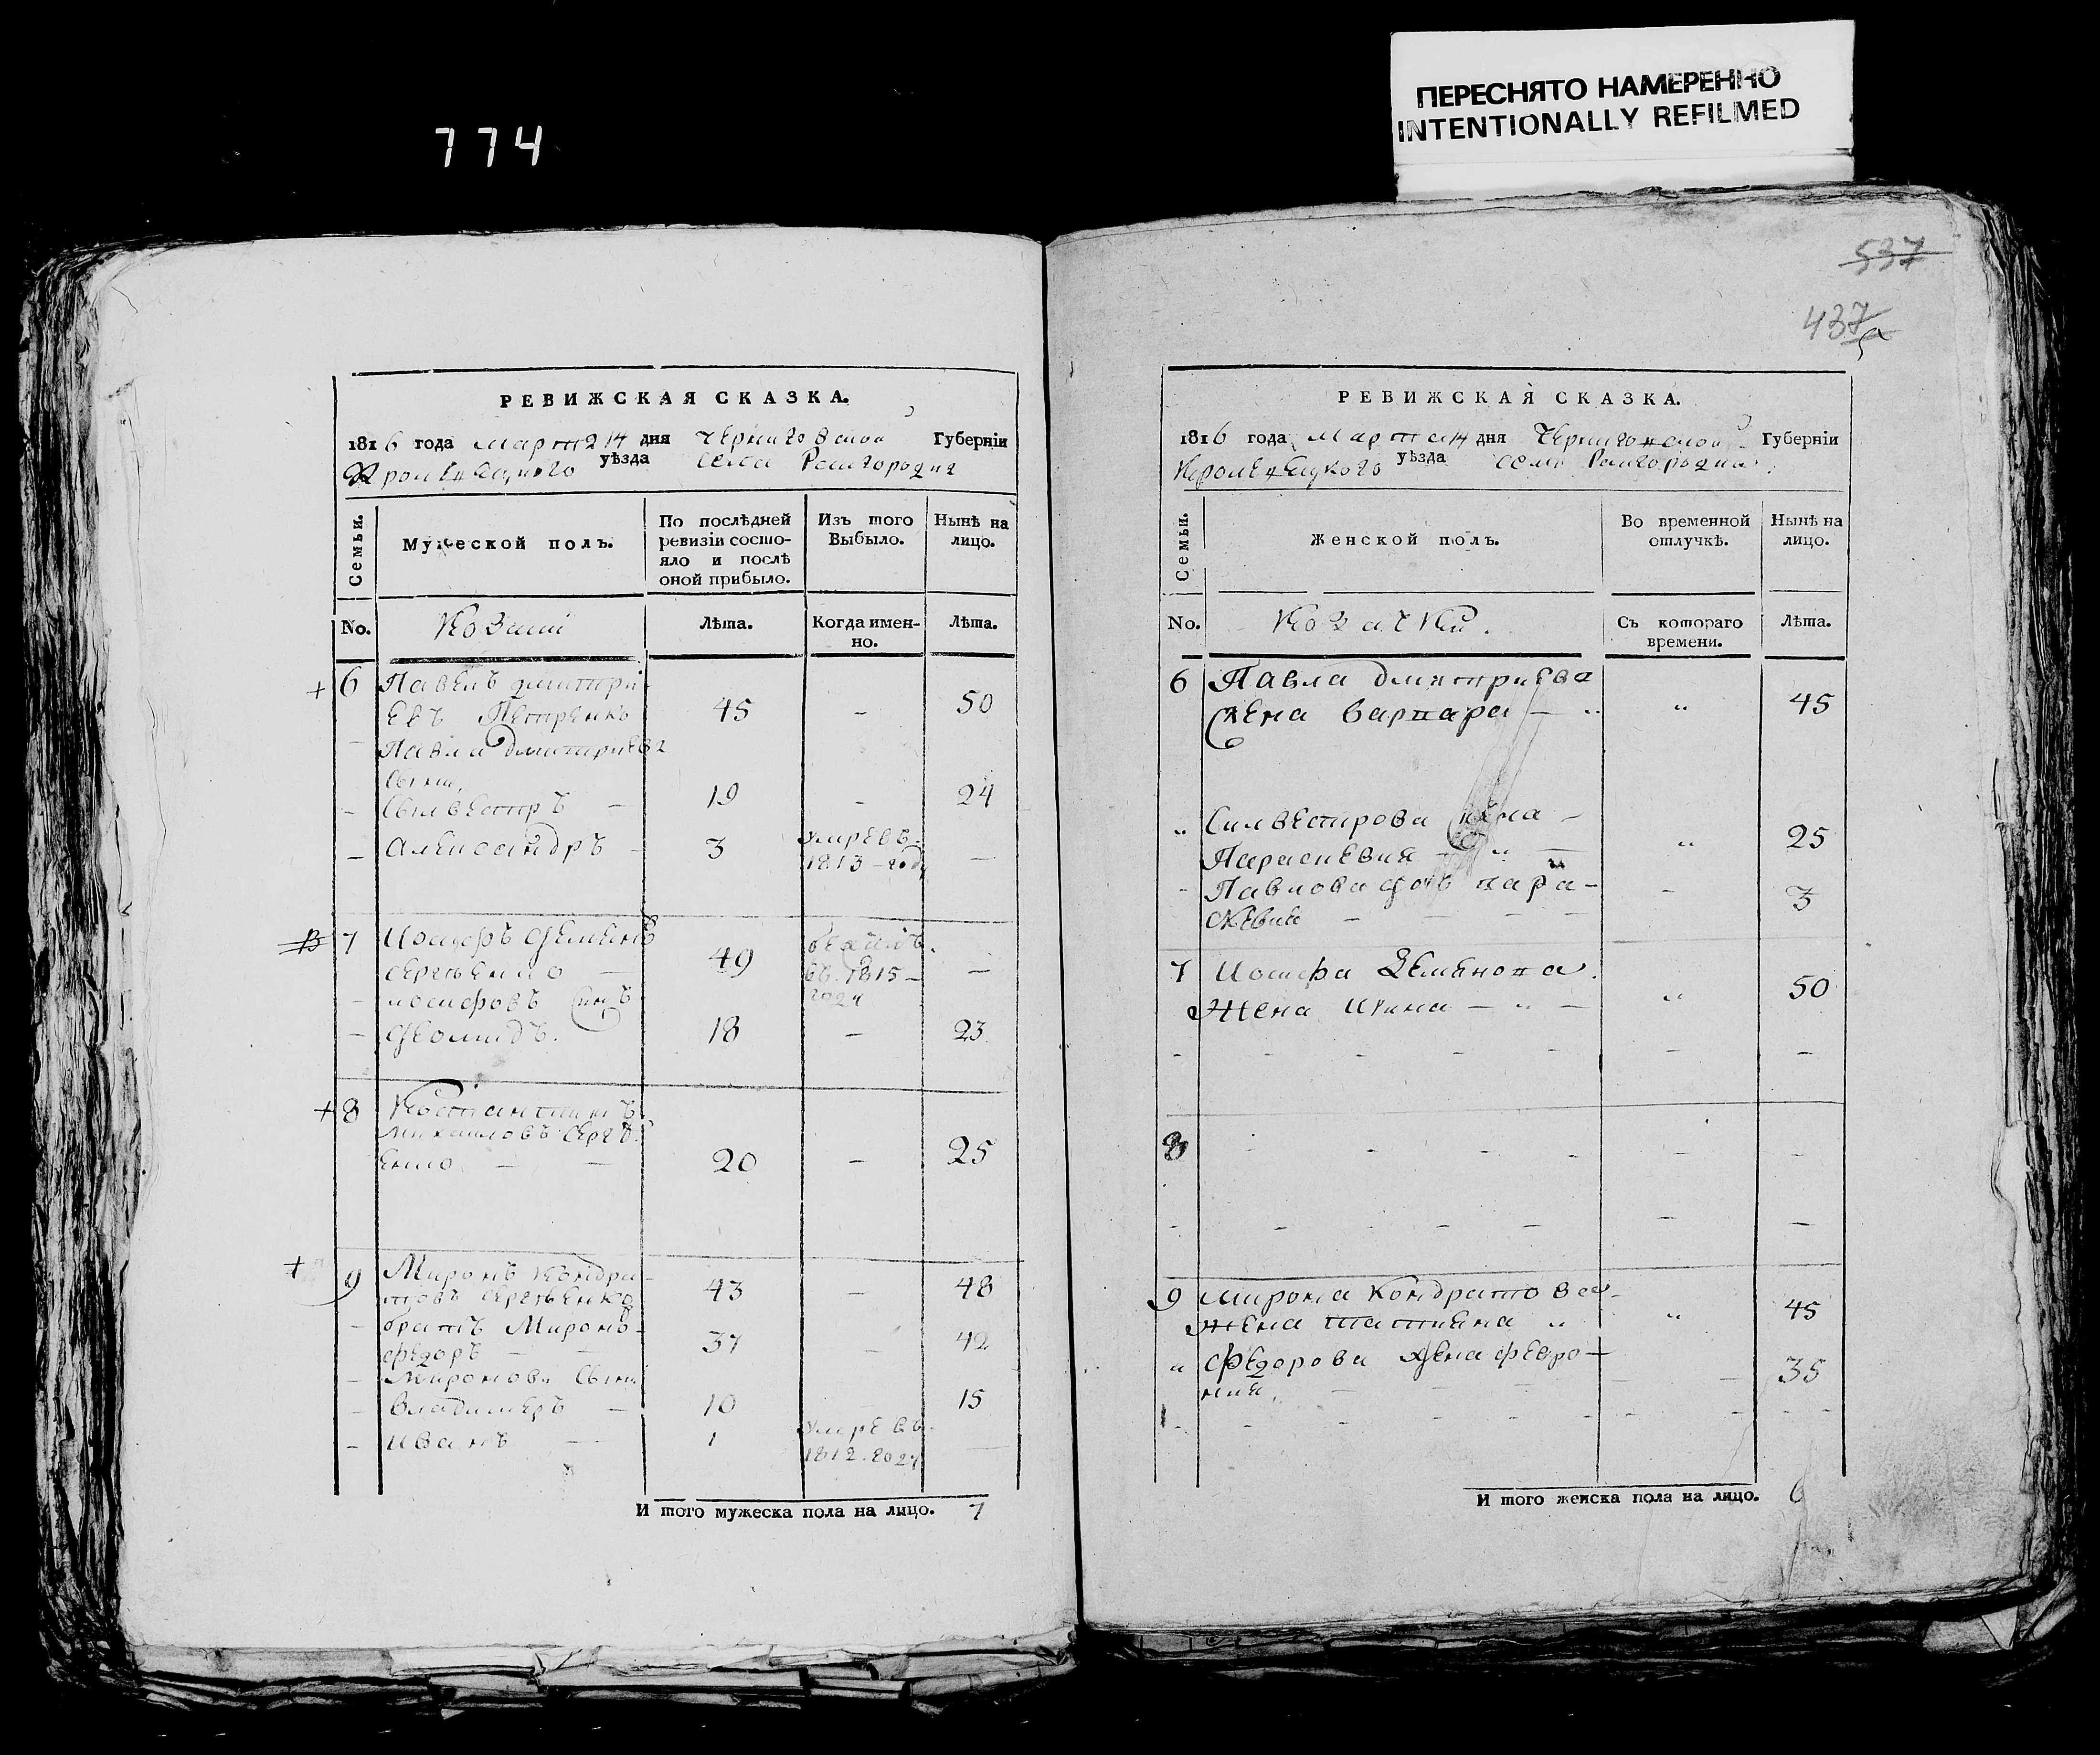 774
ПЕРЕСНЯТО НАМЕРЕННО
INTENTIONALLY REFILMED
РЕВИЖСКАЯ СКАЗКА.
1816 года марта 14 дня Черниговской Губерніи
Кролевецкого уѣзда села Райгородка
Семьи.
Мужеской полъ.
По послѣдней ревизіи состояло и послѣ оной прибыло.
Изъ того Выбыло.
Нынѣ на лицо.
No.
Козаки
Лѣта.
Когда именно.
Лѣта.
+ 6 Павелъ Дмитри-
евъ Петренко 45 - 50
Павла Дмитриева
сыни,
- Силвестръ - 19 - 24
- Александръ - 3 умре въ 1813 - году -
7 Иосифъ Семеновъ
Сергѣенко - 49 въ 1815 - году -
- иосифовъ синъ
- 18 - 23
+ 8 Костантинъ
Михайловъ Сергѣ-
енко - - 20 - 25
+ 9 Миронъ Кондра-
товъ Сергѣенко 43 - 48
- братъ Миронъ-
Федоръ - - 37 - 42
- Миронови сыни
- Владимеръ - 10 15
- Иванъ - 1 умре въ 1812. году -
И того мужеска пола на лицо. 7
537
437
РЕВИЖСКАЯ СКАЗКА.
1816 года марта 14 дня Черниговской Губерніи
Кролевецкого уѣзда села Райгородка
Семьи.
Женской полъ.
Во временной отлучкѣ.
Нынѣ на лицо.
No.
Козачки.
Съ котораго времени.
Лѣта.
6 Павла Дмитриева
жена Варвара - „ „ 45
„ Силвестрова жена -
Параскевия - „ - „ 25
- Павлова дочь Пара-
скевия - - - - - 3
7 Иосифа Семенова
Жена - „ - „ 50
- - - - - - -
8 - - - - - -
- - - - - -
9 Мирона Кондратова
Жена Татияна „ „ 45
„ Федорова жена Февро-
ния, - - - - - 35
- - - - - - - -
И того женска пола на лицо. 6